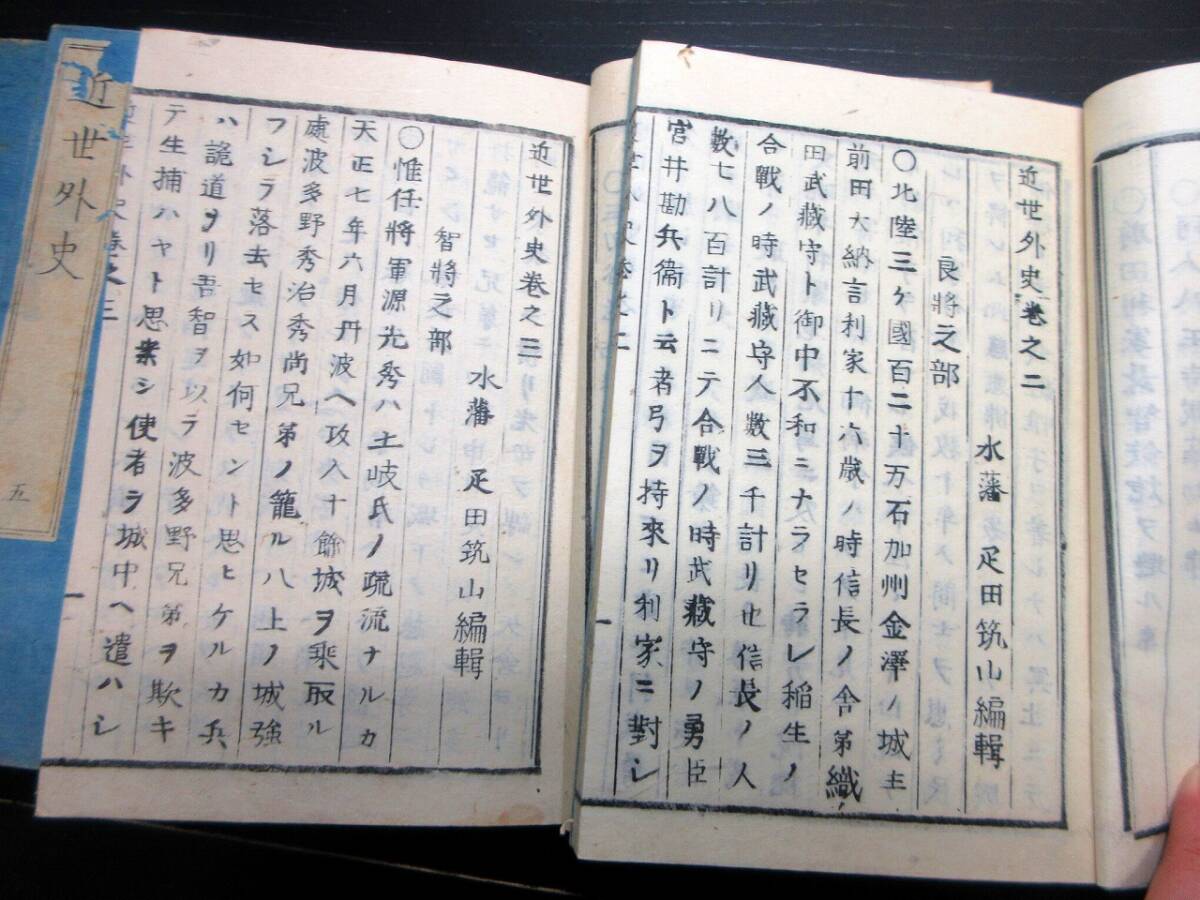 近世外史卷之二
水藩 疋田筑山編輯
良將之部
〇北陸三ケ國百二十万石加州金澤ノ城主
前田大納言利家十六歳ノ時信長ノ舎弟織
田武藏守ト御中不和ニナラセラレ稲生ノ
合戰ノ時武藏守人數三千計リ也信長ノ人
數七八百計リニテ合戰ノ時武藏守ノ勇臣
宮井勘兵衞ト云者弓ヲ持來リ利家ニ對シ
一
近世外史卷之三
水藩 疋田筑山編輯
智將之部
〇惟任將軍源光秀ハ土岐氏ノ疏流ナルカ
天正七年六月丹波ヘ攻入十餘城ヲ乗取ル
處波多野秀治秀尚兄弟ノ籠ル八上ノ城強
フシラ落去セス如何セント思ヒケルカ兵
ハ詭道ヲリ吾智ヲ以ラ波多野兄弟ヲ欺キ
テ生捕ハヤト思案シ使者ラ城中ヘ遣ハシ
卷之三
一
近世外史
五